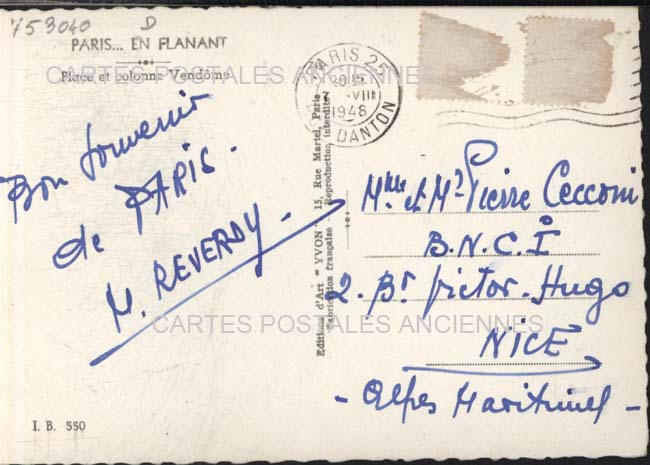 753040 D
PARIS... EN FLANANT
Place et colonne Vendôme
CARTES POSTALES ANCIENNES
PARIS 25
VIII
1948
DANTON
Bon souvenir
de PARIS.
M. REVERDY
Editions d'Art "YVON" 15, Rue Martel, Paris
Fabrication française Reproduction interdite
Mme et Mr Pierre Cecconi
B.N.C.I
2. Bd Victor-Hugo
NICE
- Alpes Maritimes -
CARTES POSTALES ANCIENNES
I. B. 550